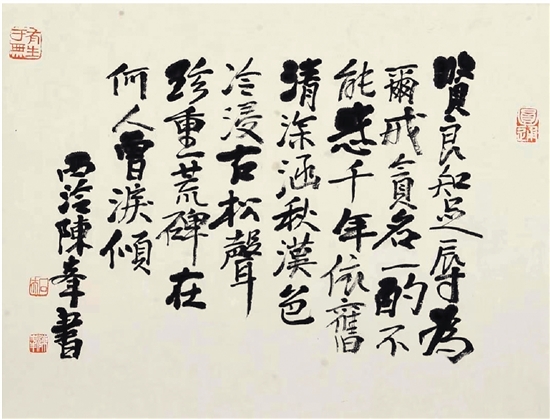 賢良知足辱為
爾戒貪名一酌不
能惑千年依舊
清深涵秋漢色
冷浸古松聲
珍重荒碑在
何人曾淚傾
西泠陳峯書
有生于無